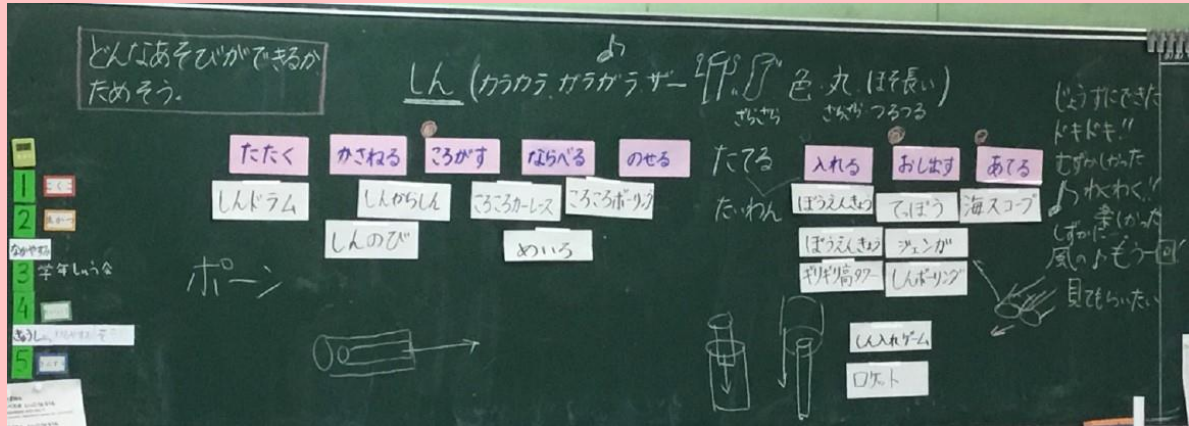 どんなあそびができるか
ためそう。
しん(カラカラ、ガラガラ、ザー 色 丸 ほそ長い)
ざらざら ざらざら つるつる
たたく かさねる ころがす ならべる のせる たてる 入れる おし出す あてる
しんドラム しんからしん ころころカーレース ころころボーリング たいわん ぼうえんきょう てっぽう 海スコープ
しんのび めいろ ぼうえんきょう ジェンガ
ギリギリ高タワー しんボーリング
しん入れゲーム
ロケット
ポーン
じょうずにできた
ドキドキ!!
むずかしかった
わくわく!!
楽しかった
しずかに
風の♪もう一回
見てもらいたい
1
2
なかやすみ
3 学年しゅう会
4
5